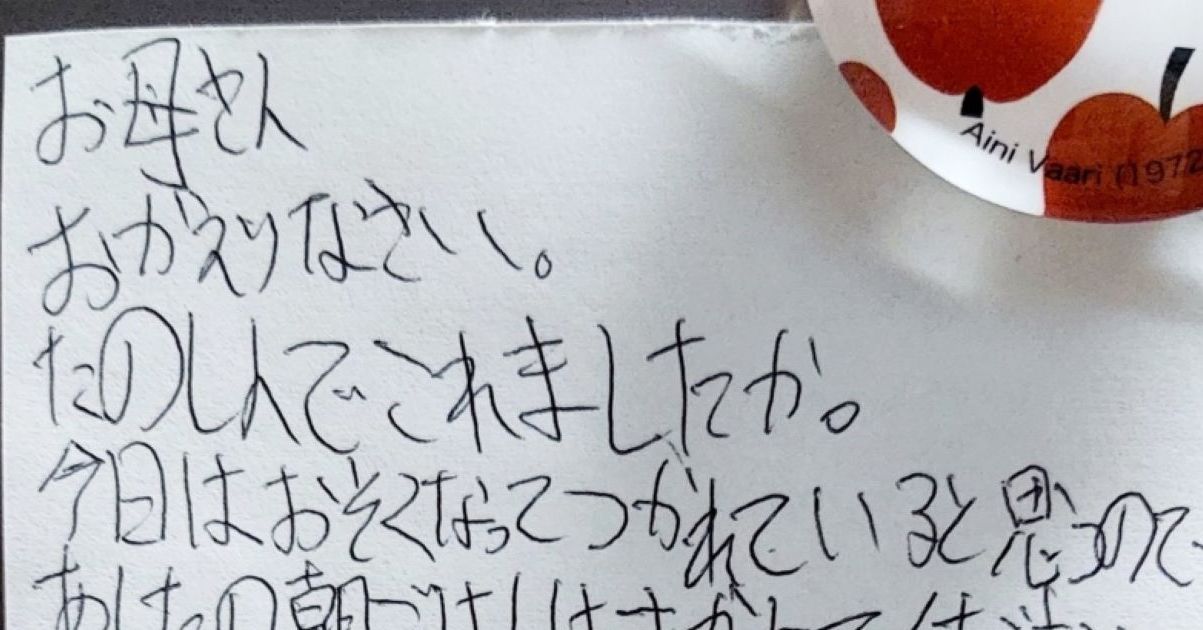 お母さん
おかえりなさい。
たのしんでこれましたか。
今日はおそくなってつかれていると思うので、
の朝
Aini Vaari (1972